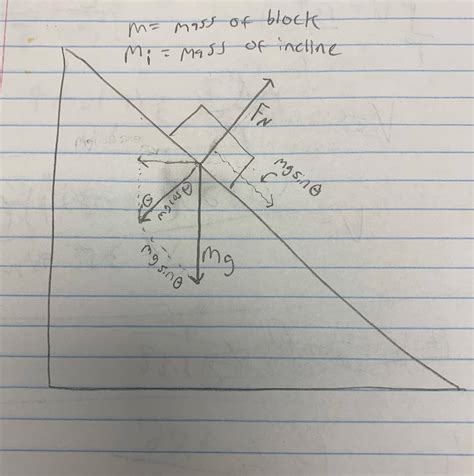 m= mass of block
Mi = Mass of incline
FN
mgsinθ
θ
mgcosθ
mgsinθ
Mg